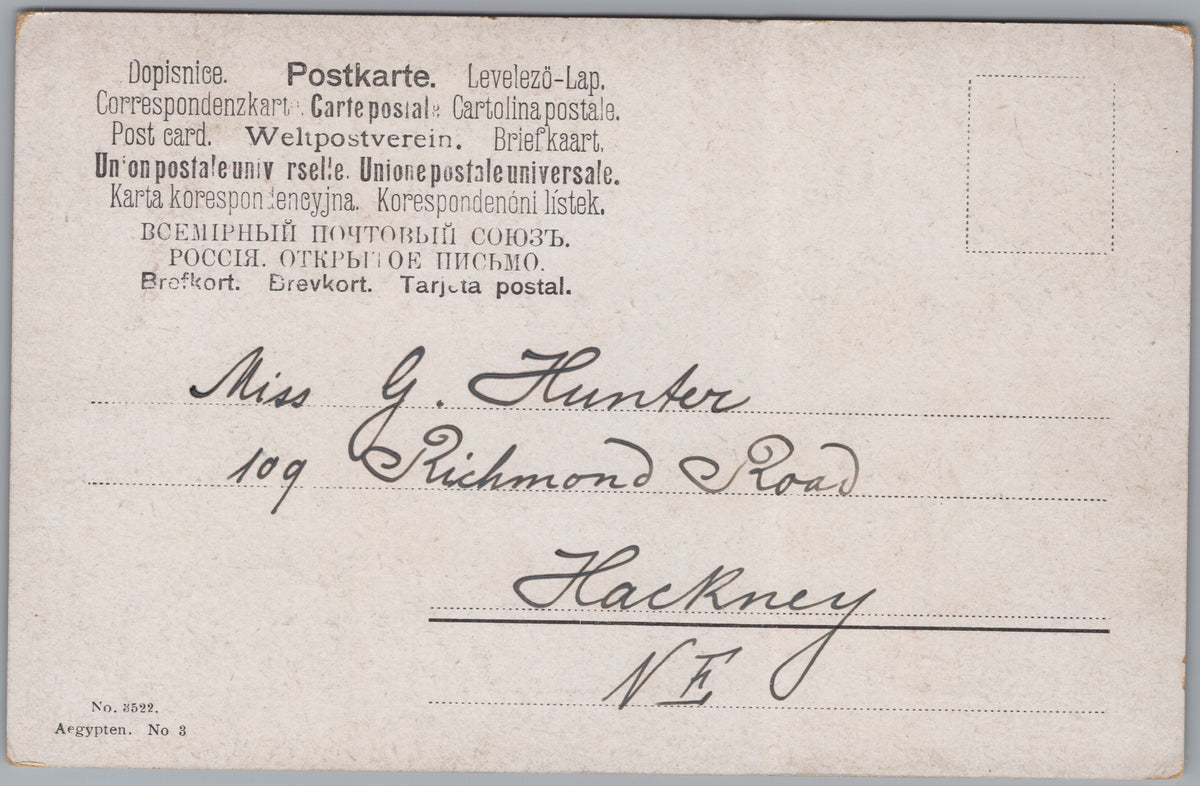 Dopisnice. Postkarte. Levelezö-Lap.
Correspondenzkarte. Carte postale Cartolina postale.
Post card. Weltpostverein. Briefkaart.
Union postale universelle. Unione postale universale.
Karta korespondencyjna. Korespondenčni lístek.
ВСЕМІРНЫЙ ПОЧТОВЫЙ СОЮЗЪ.
РОССІЯ. ОТКРЫТОЕ ПИСЬМО.
Brefkort. Brevkort. Tarjeta postal.
Miss G. Hunter
109 Richmond Road
Hackney
NE
No. 3522.
Aegypten. No 3